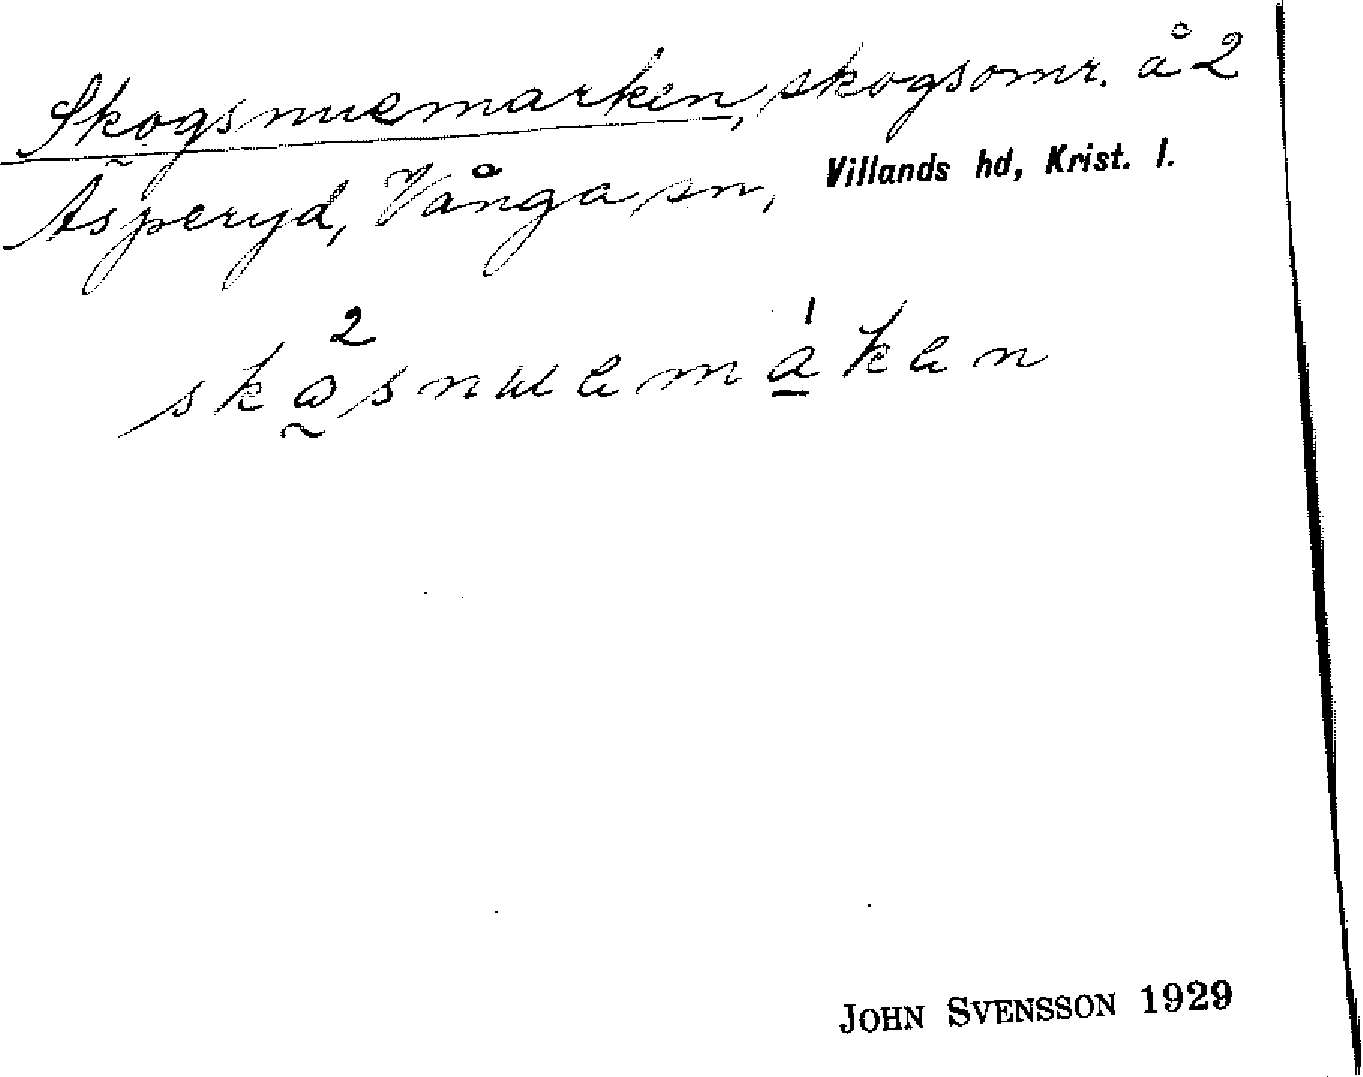 Skogsnuemarken, skogsomr. å 2
Äsperyd, Vånga sn, Villands hd, Krist. l.
JOHN SVENSSON 1929